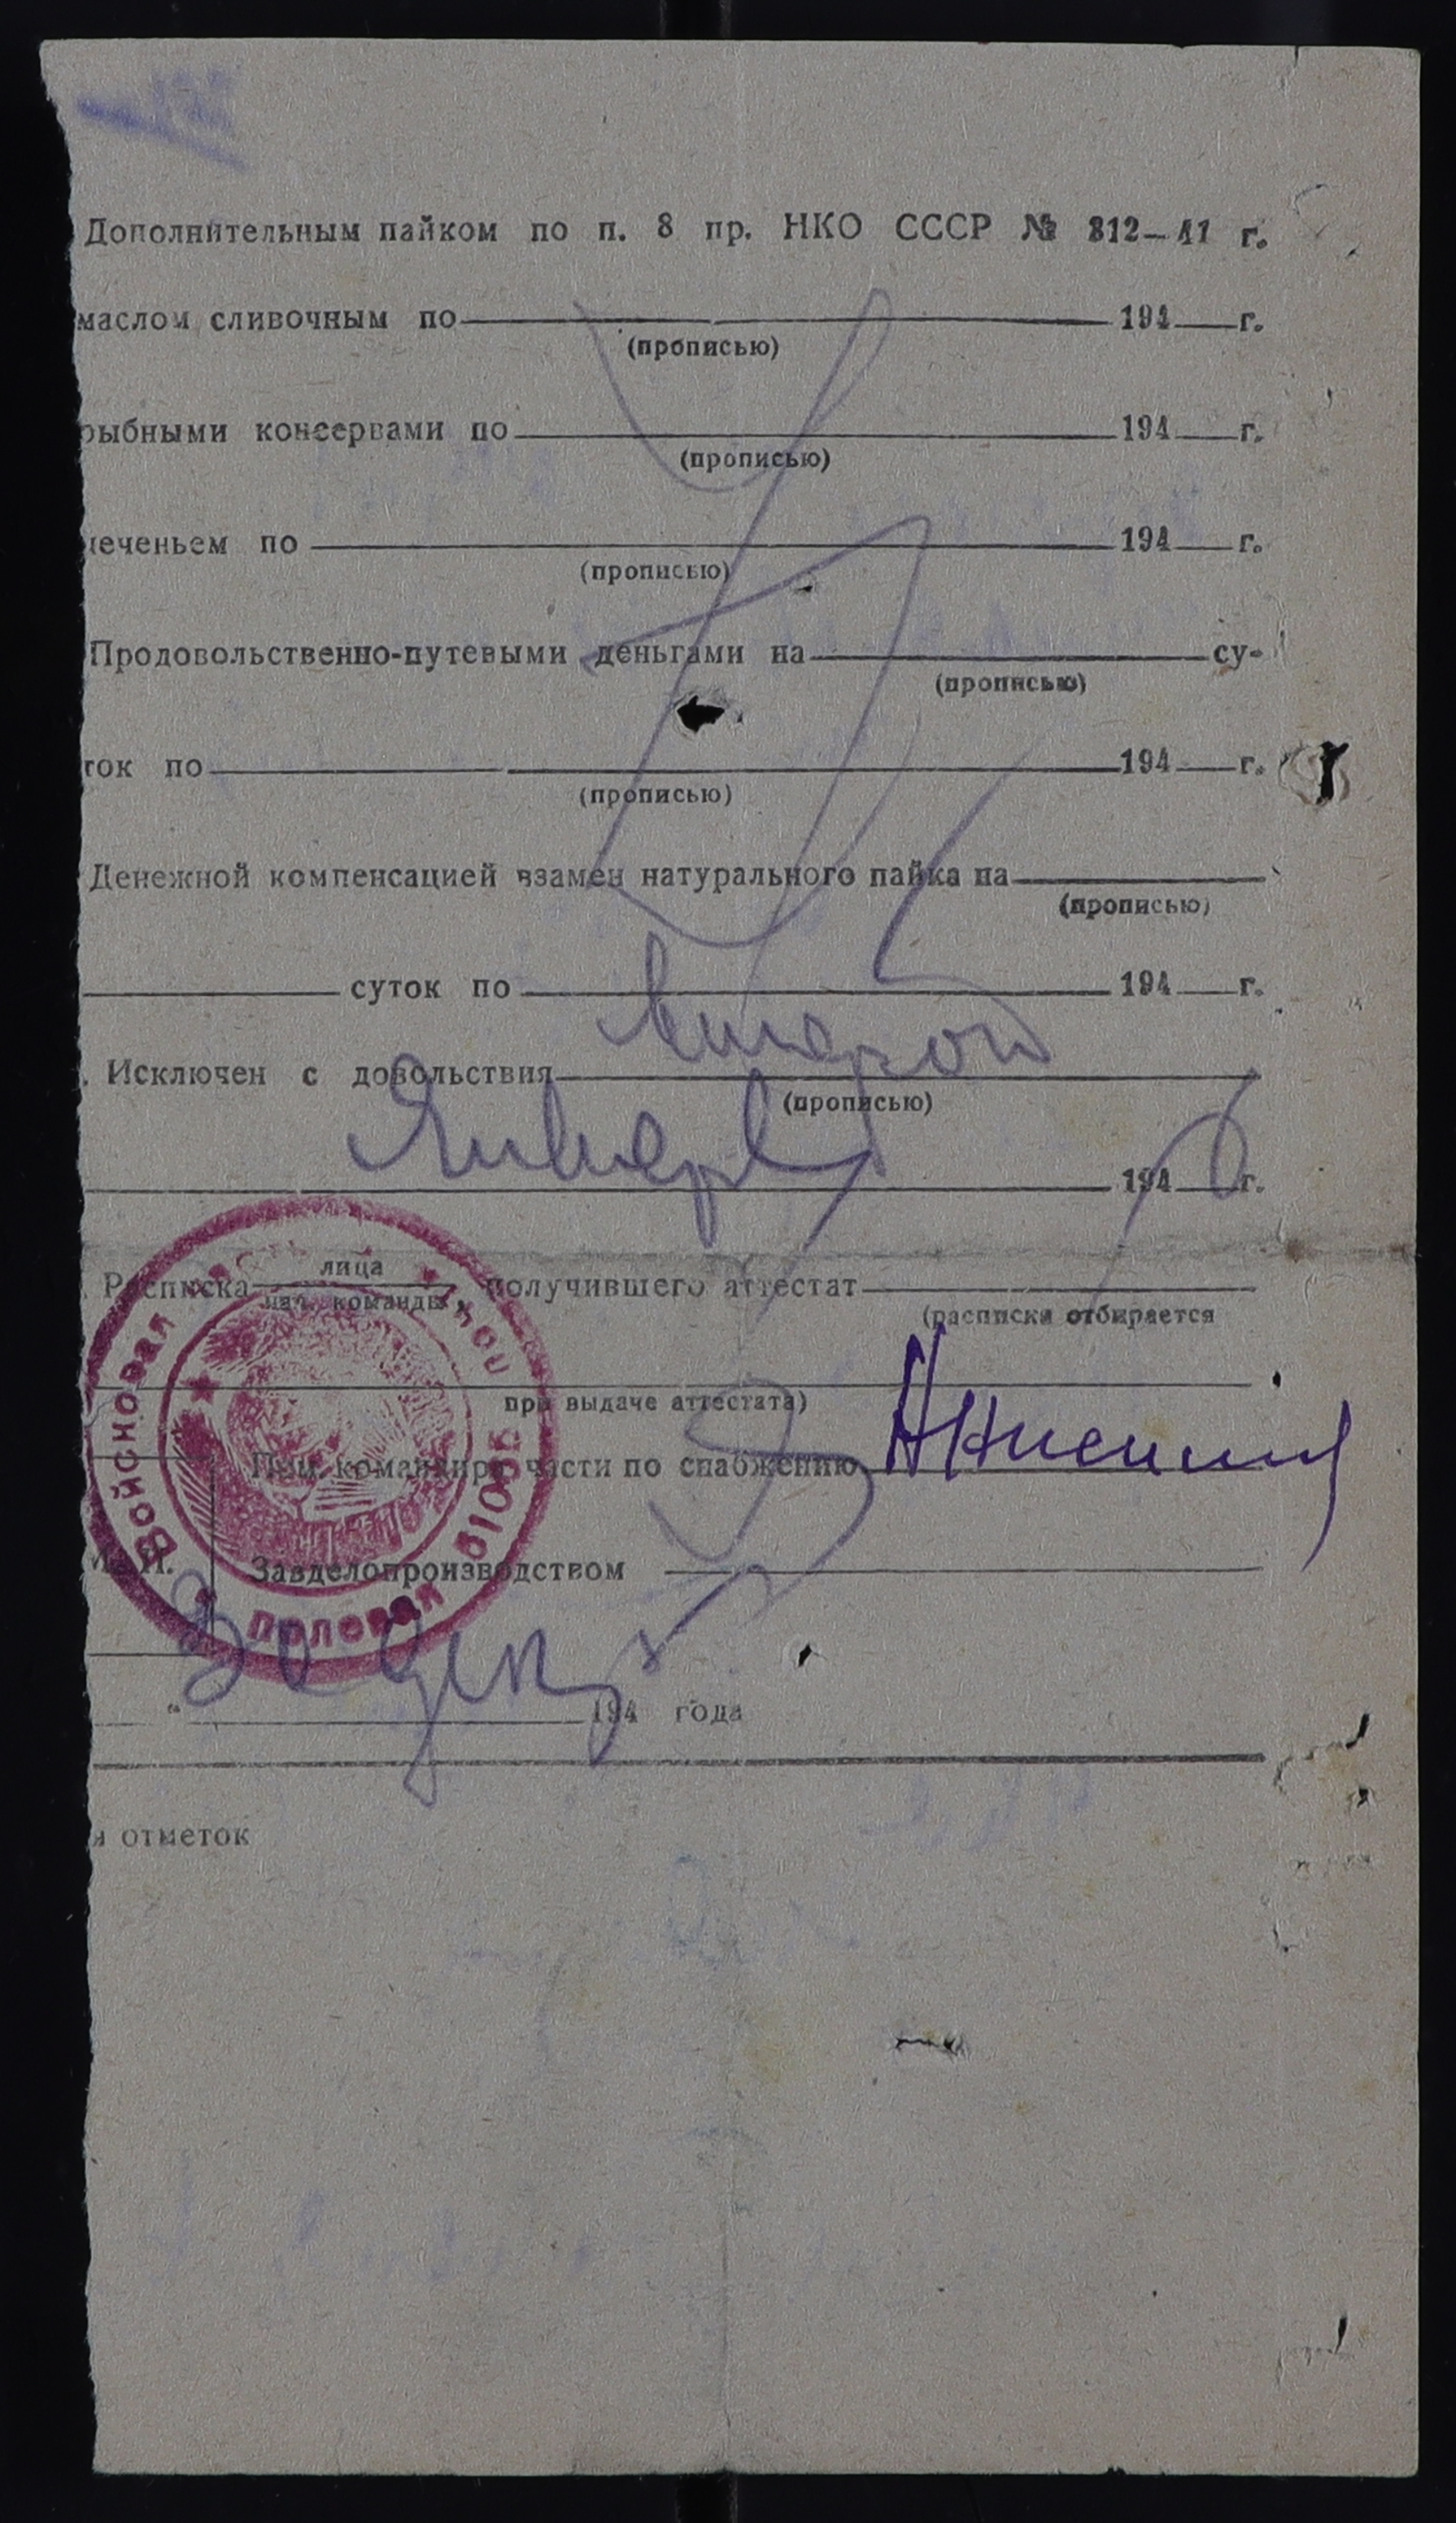 Дополнительным пайком по п. 8 пр. НКО СССР № 312—41 г.
маслом сливочным по 194 г.
(прописью)
рыбными консервами по 194 г.
(прописью)
печеньем по 194 г.
(прописью)
Продовольственно-путевыми деньгами на су-
(прописью)
ток по 194 г.
(прописью)
Денежной компенсацией взамен натурального пайка на
(прописью)
суток по 194 г.
Исключен с довольствия
(прописью)
Января 194 6 г.
Расписка лица
нач. команды, получившего аттестат
(расписка отбирается
при выдаче аттестата)
Пом. командира части по снабжению
М. П. Завделопроизводством
Войсковая часть
полевая почта
30 дек 194 5 года
я отметок